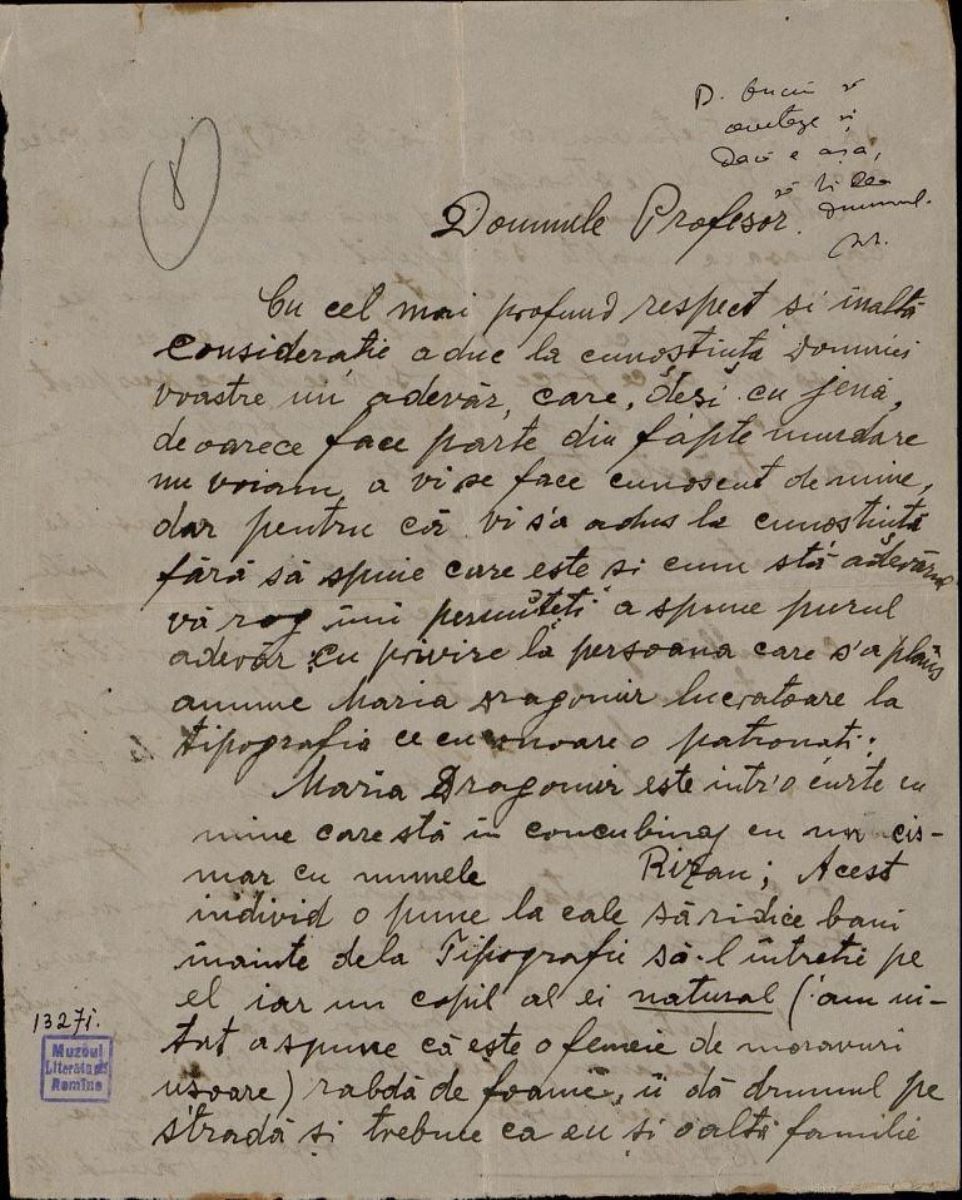 D.
să
și
Dacă e așa,
să îi dea
drumul.
8
Domnule Profesor.
Cu cel mai profund respect si înaltă
considerație aduc la cunoștiința Domniei
voastre un adevăr, care, deși cu jenă,
deoarece face parte din fapte murdare
nu voiam, a vi se face cunoscut de mine,
dar pentru că vi s'a adus la cunoștiintă
fără să spuie care este și cum stă adevărul
vă rog îmi permiteți a spune purul
adevăr cu privire la persoana care s'a plâns
anume Maria Dragomir lucratoare la
tipografia ce cu onoare o patronați.
Maria Dragomir este intr'o curte cu
mine care stă in concubinaj cu un cis-
mar cu numele Rizan; Acest
individ o pune la cale să ridice bani
înainte dela Tipografie să-l întretie pe
el iar un copil al ei natural (am ui-
tat a spune că este o femeie de moravuri
ușoare) rabdă de foame, îi dă drumul pe
stradă și trebuie ca eu și o altă familie
13271.
Muzeul
Literaturii
Romîne